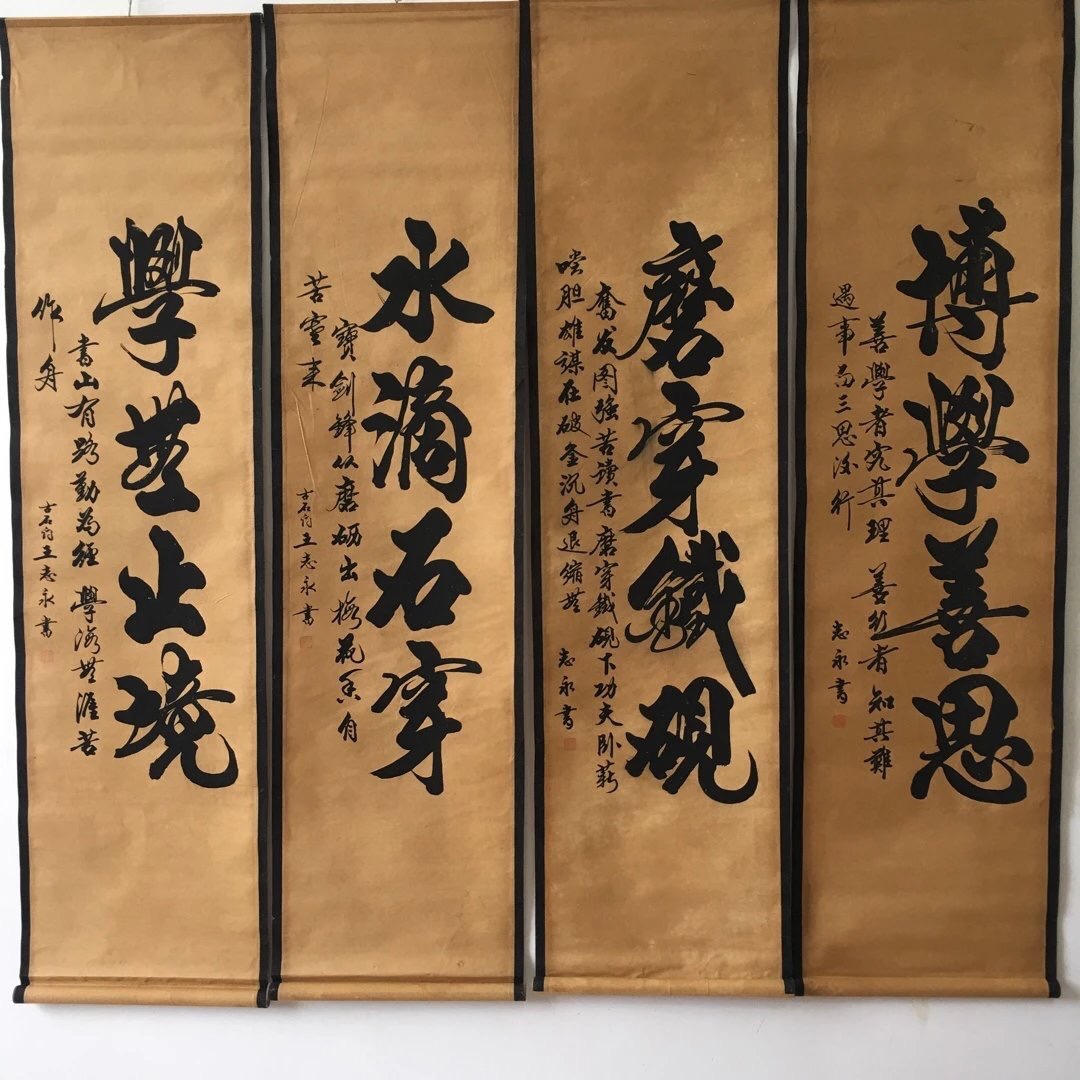 博學善思
善學者究其理 善行者知其難
遇事三思後行
志永書
磨穿鐵硯
奮发图强苦讀書磨穿鐵硯下功夫卧薪
嘗胆雄謀在破釜沉舟退縮無
志永書
水滴石穿
寶劍鋒从磨砺出梅花香自
苦寒来
古石 王志永書
學無止境
書山有路勤為徑 學海無涯苦
作舟
古石 王志永書